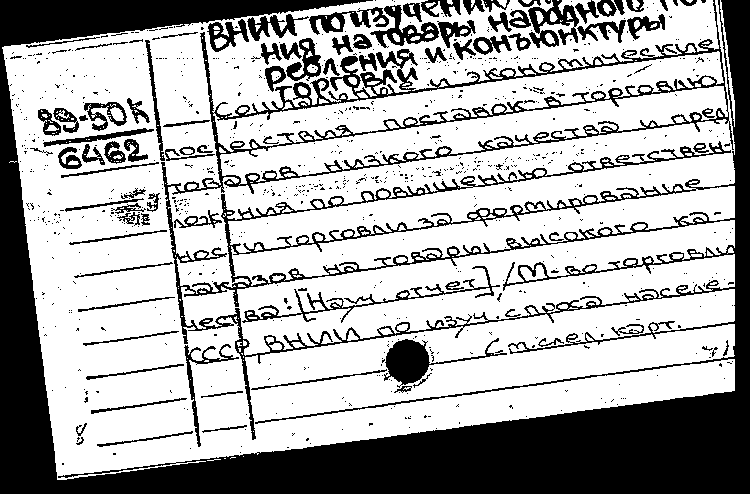 ВНИИ по изучению
ния на товары народного
ребления и конъюнктуры
торговли
89-50к
6462
Социальные и экономические
последствия поставок в торговлю
товаров низкого качества и пред
ложения по повышению ответствен-
ности торговли за формирование
заказов на товары высокого ка-
чества: [Науч. отчет] / М-во торговли
СССР, ВНИИ по изуч. спроса населе-
См. след. карт.
8